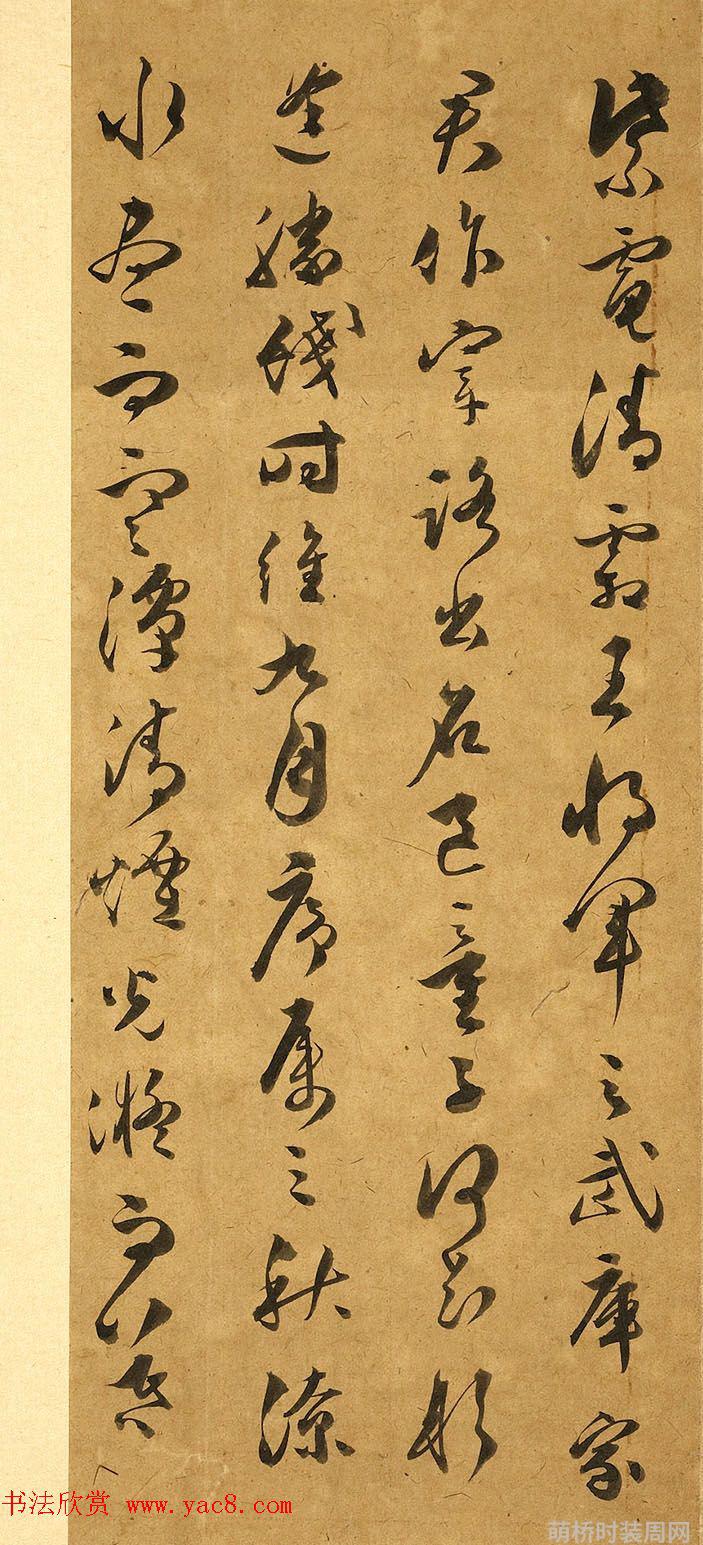 紫電清霜王將軍之武庫家
君作宰路出名區童子何知躬
逢勝餞時維九月序屬三秋潦
水盡而寒潭清煙光凝而暮
书法欣赏 www.yac8.com
萌桥时装周网